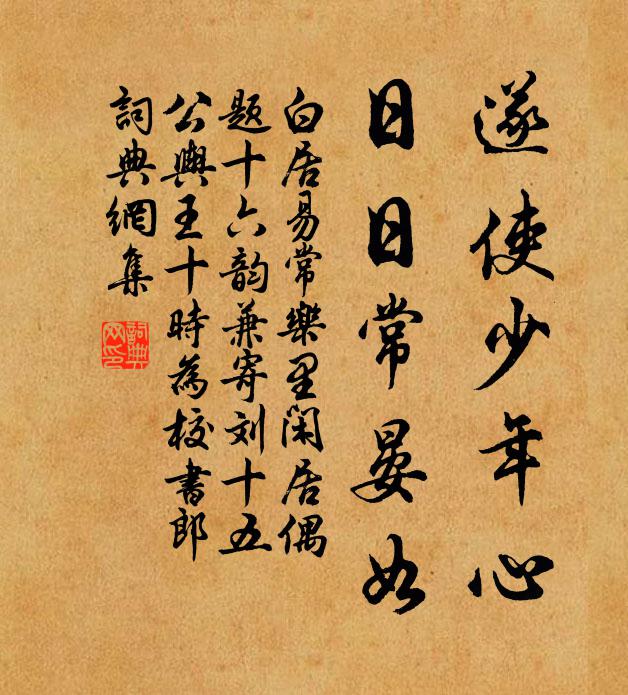 遂使少年心
日日常晏如
白居易常樂里閑居偶
題十六韵兼寄刘十五
公輿王十時為校書郎
詞典網集
詞典网印